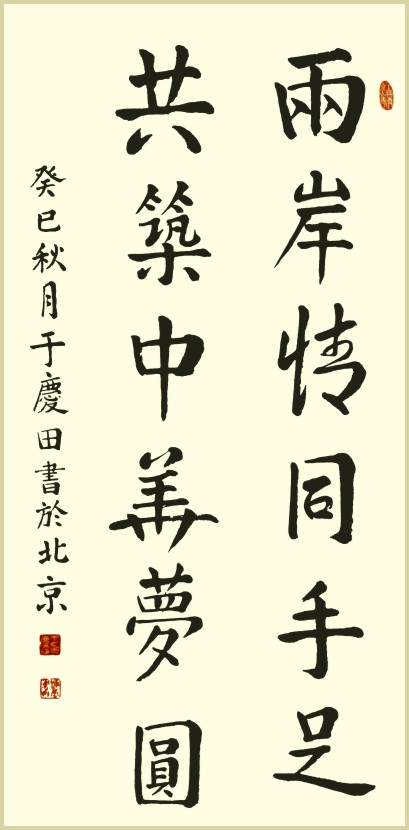 兩岸情同手足
共築中華夢圓
癸巳秋月于慶田書於北京